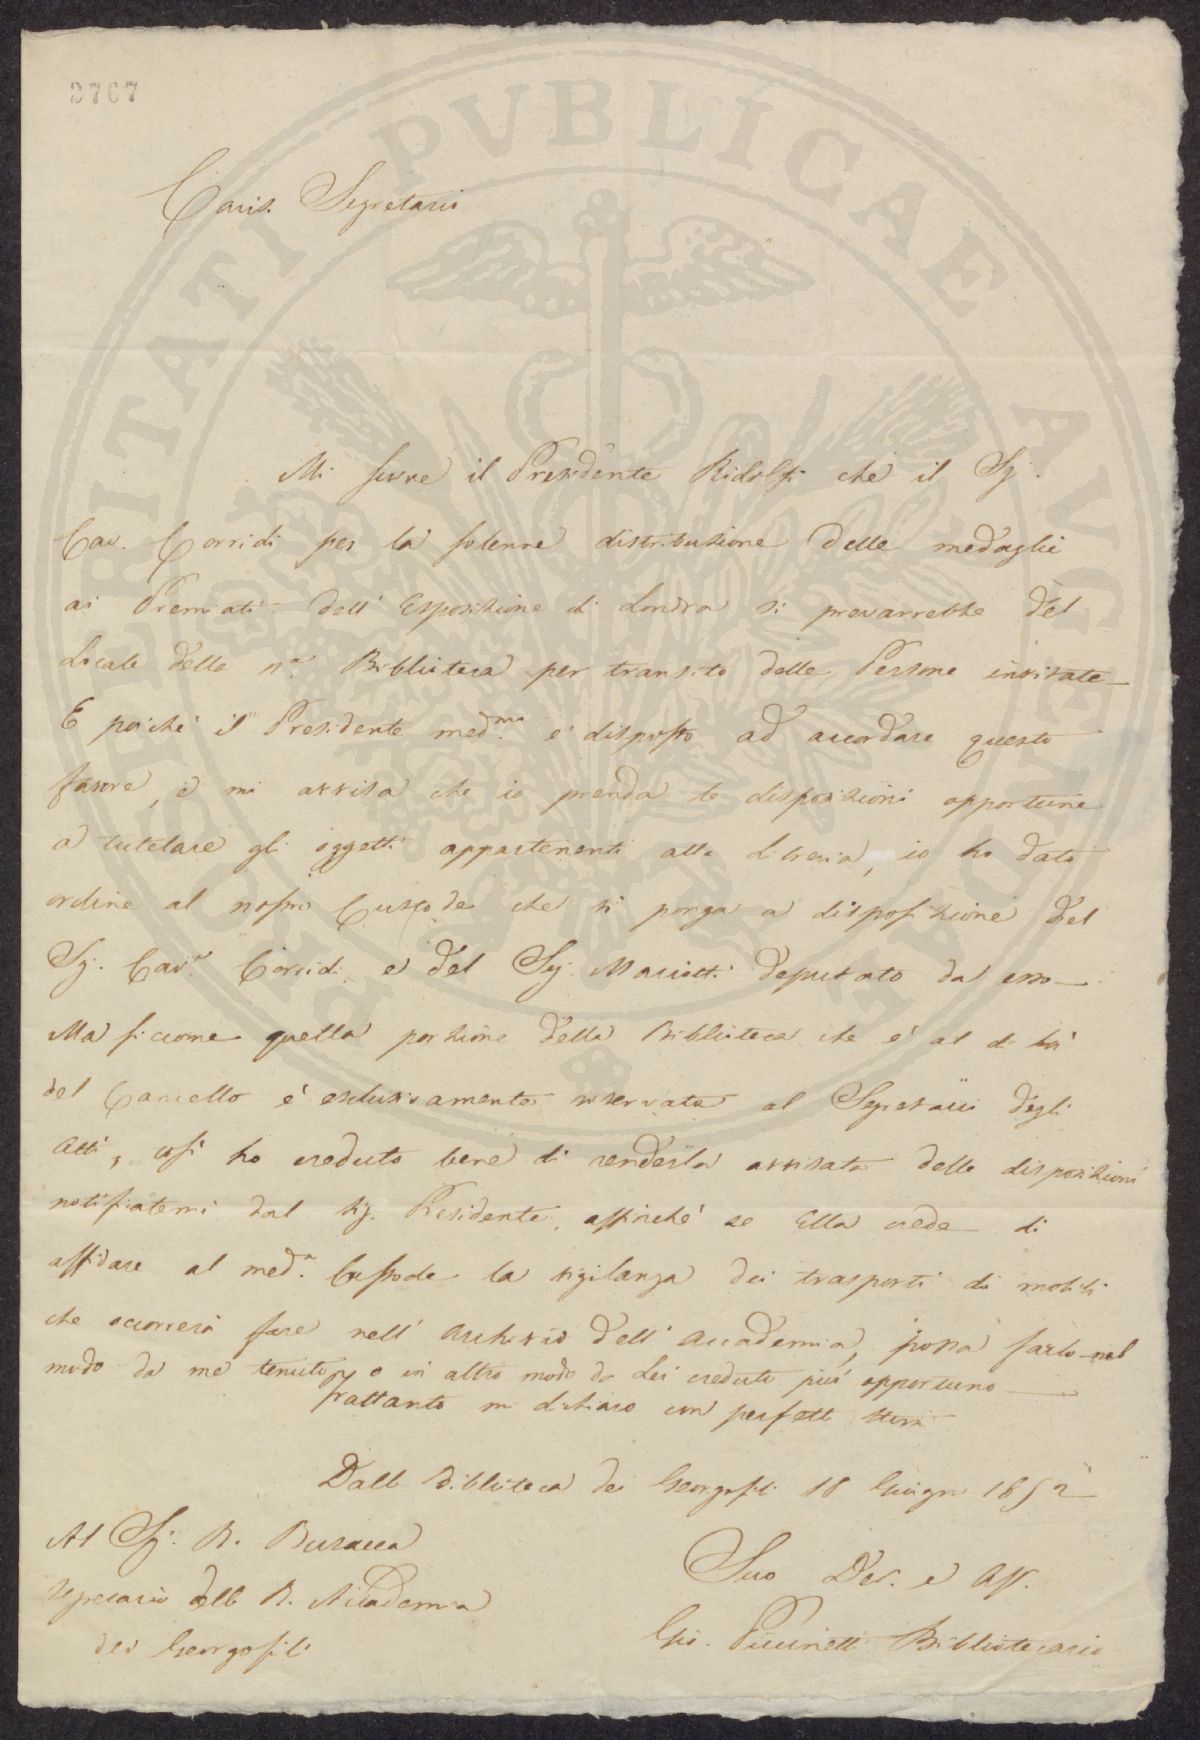 2767
PROSPERITATI PVBLICAE AVGENDAE
Caris. Segretario
Mi scrive il Presidente Ridolfi che il Sig.
Cav. Corridi per la solenne distribuzione delle medaglie
ai Premiati dell' Esposizione di Londra si prevarrebbe del
Locale della n.a Biblioteca per transito delle Persone invitate
E poiché il Presidente med.mo è disposto ad accordare questo
favore, e mi avvisa che io prenda le disposizioni opportune
a tutelare gli oggetti appartenenti alla Libreria, io ho dato
ordine al nostro Custode che si ponga a disposizione del
Sig. Cav.r Corridi e del Sig. Mariotti deputato da esso
Ma siccome quella porzione della Biblioteca che è al di là
del Cancello è esclusivamente riservata al Segretario degli
Atti, così ho creduto bene di renderla avvisata delle disposizioni
notificatemi dal Sig. Presidente, affinché se Ella crede di
affidare al med.o Custode la vigilanza dei trasporti di mobili
che occorrerà fare nell' Archivio dell' Accademia, possa farlo nel
modo da me tenuto, o in altro modo da Lei creduto più opportuno
Frattanto mi dichiaro con perfetta stima
Dalla Biblioteca dei Georgofili 18 Giugno 1852
Al Sig. R. Busacca
Segretario della R. Accademia
dei Georgofili
Suo Dev. e Aff.
Gio. Piccinetti Bibliotecario